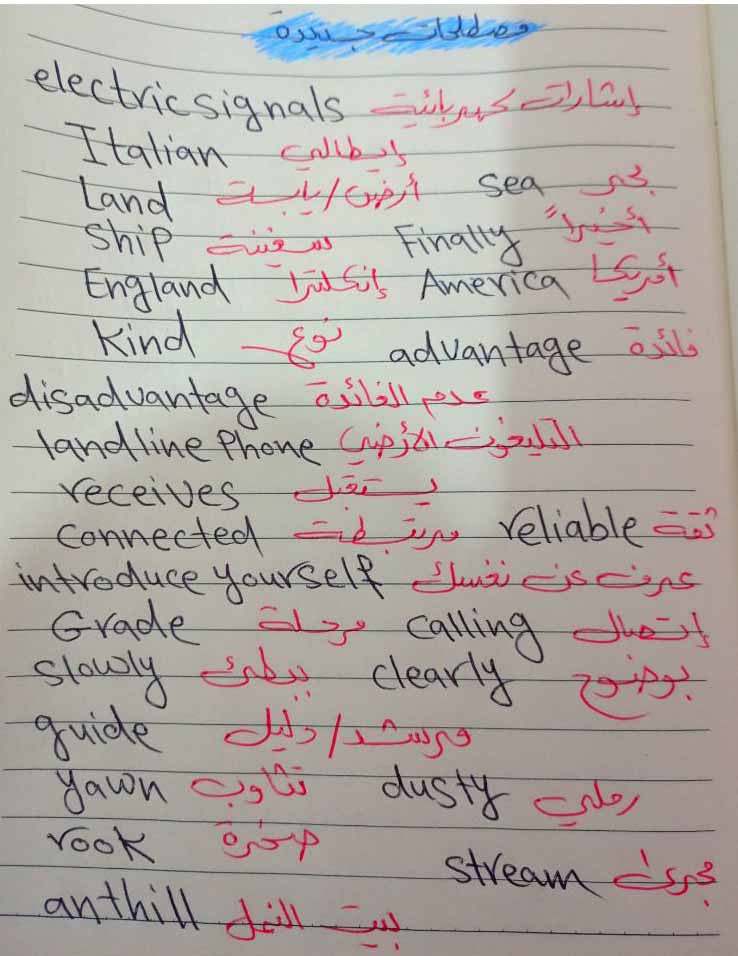 مصطلحات جديدة
electric signals إشارات كهربائية
Italian إيطالي
Land أرض/يابسة sea بحر
Ship سفينة Finally أخيراً
England إنكلترا America أمريكا
Kind نوع advantage فائدة
disadvantage عدم الفائدة
landline Phone التليفون الأرضي
receives يستقبل
connected مرتبطة reliable ثقة
introduce yourself عرف عن نفسك
Grade مرحلة calling إتصال
slowly ببطئ clearly بوضوح
guide مرشد/دليل
yawn تثاوب dusty رملي
rook صخرة
stream مجرى
anthill بيت النمل